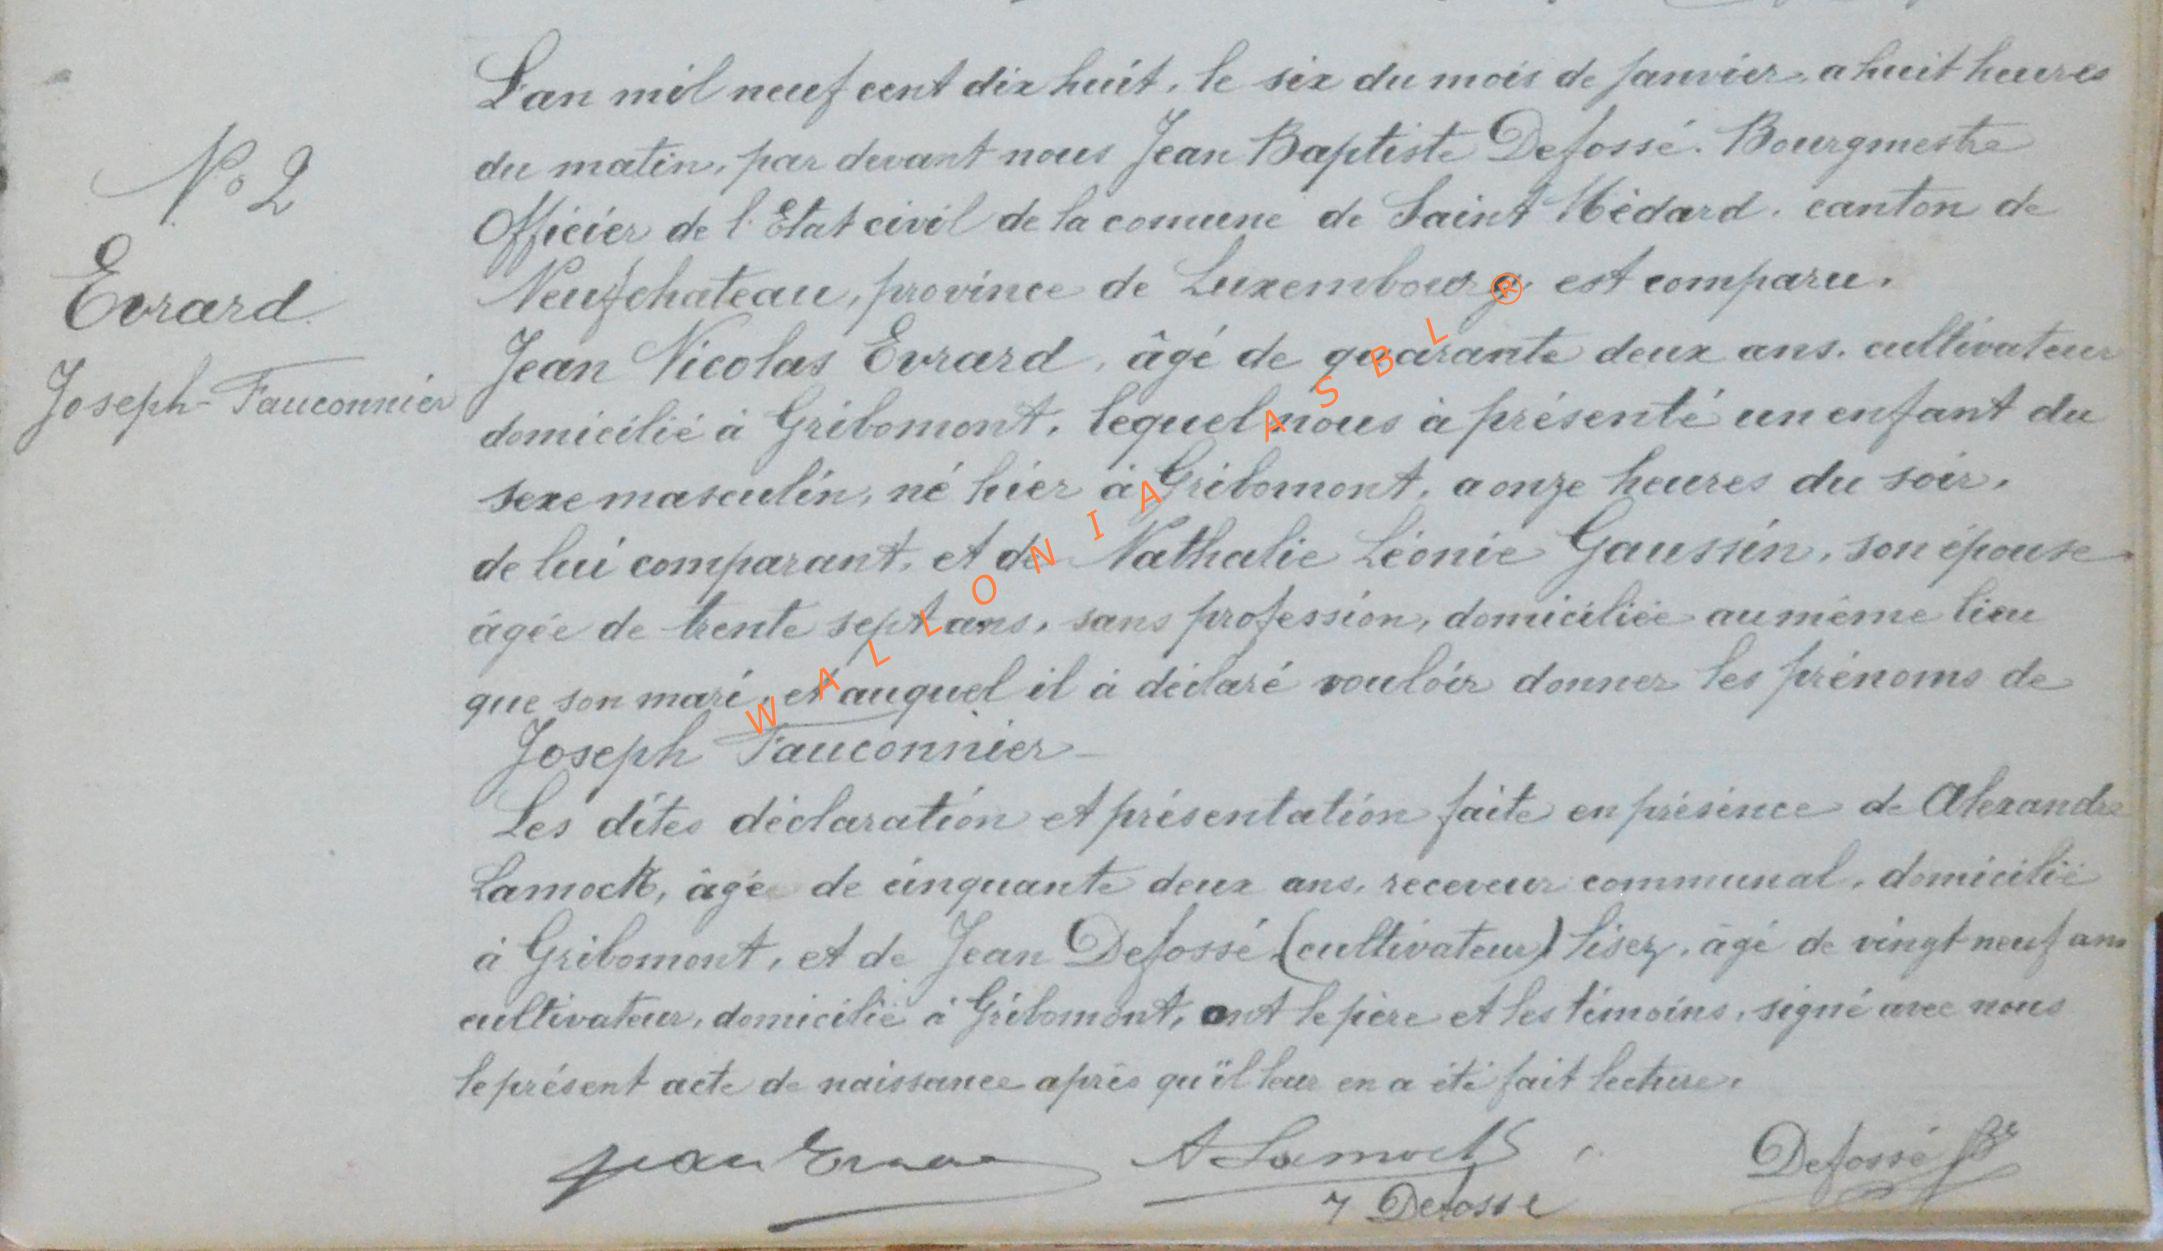 N° 2
Evrard
Joseph Fauconnier
L'an mil neuf cent dix huit, le six du mois de Janvier, a huit heures
du matin, par devant nous Jean Baptiste Defossé. Bourgmestre
Officier de l'Etat civil de la comune de Saint Médard. canton de
Neufchateau, province de Luxembourg, est comparu.
Jean Nicolas Evrard, âgé de quarante deux ans. cultivateur
domicilié à Gribomont, lequel nous à présenté un enfant du
sexe masculin, né hier à Gribomont, a onze heures du soir,
de lui comparant, et de Nathalie Léonie Gaussin, son épouse
âgée de trente sept ans, sans profession, domiciliée au même lieu
que son mari, et auquel il à déclaré vouloir donner les prénoms de
Joseph Fauconnier
Les dites déclaration et présentation faite en présence de Alexandre
Lamock, âgé de cinquante deux ans, receveur communal, domicilié
à Gribomont, et de Jean Defossé (cultivateur) lisez, âgé de vingt neuf ans
cultivateur, domicilié à Gribomont, ont le père et les témoins, signé avec nous
le présent acte de naissance après qu'il leur en a été fait lecture.
Jean Evrard A Lamock Defossé
J Defossé
WALLONIA ASBL ®